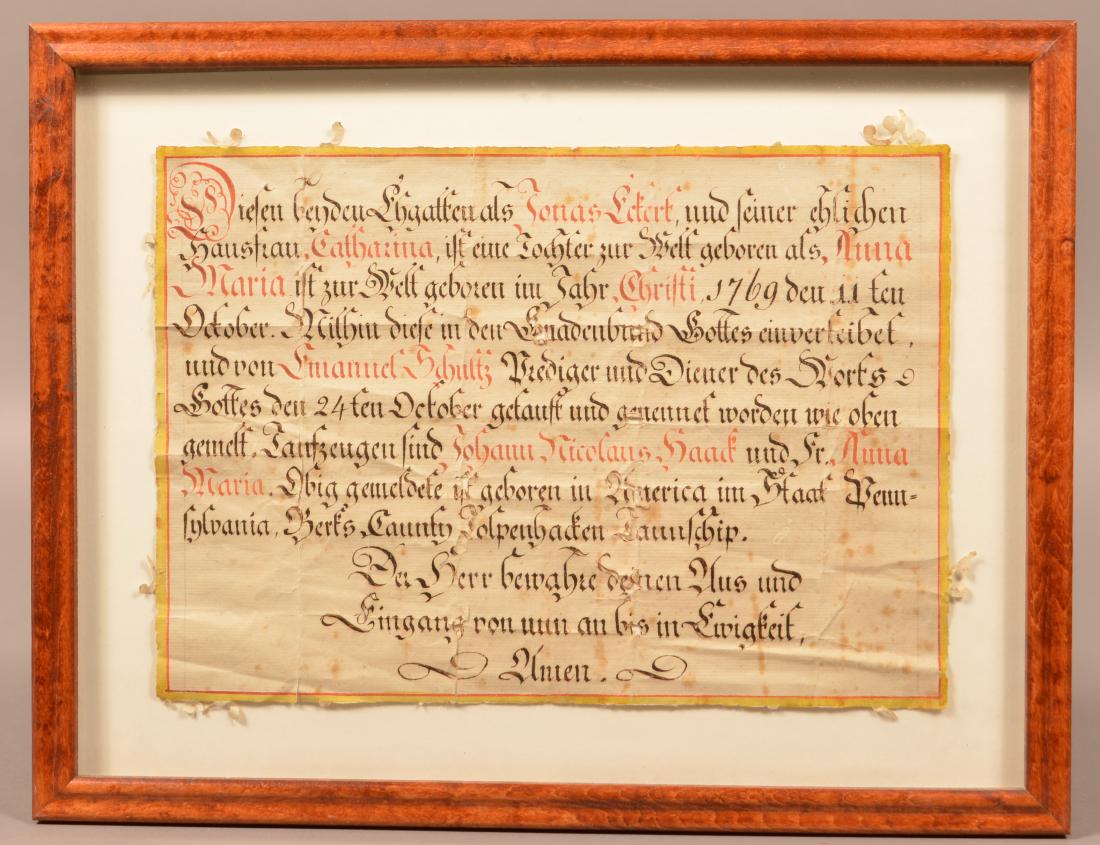 Diesen beyden Ehgatten als Jonas Eckert, und seiner ehlichen
Hausfrau, Catharina, ist eine Tochter zur Welt geboren als, Anna
Maria ist zur Welt geboren im Jahr, Christi, 1769 den 11 ten
October. Mithin diese in den Gnadenbund Gottes einverleibet,
und von Emanuel Schultz Prediger und Diener des Worts
Gottes den 24 ten October getauft und genennet worden wie oben
gemelt. Taufzeugen sind Johann Nicolaus Haack und Fr. Anna
Maria. Obig gemeldete ist geboren in America im Staat Penn-
sylvania, Berks, Caunty Tolpenhacken Taunschip.
Der Herr bewahre deinen Aus und
Eingang von nun an bis in Ewigkeit,
Amen.